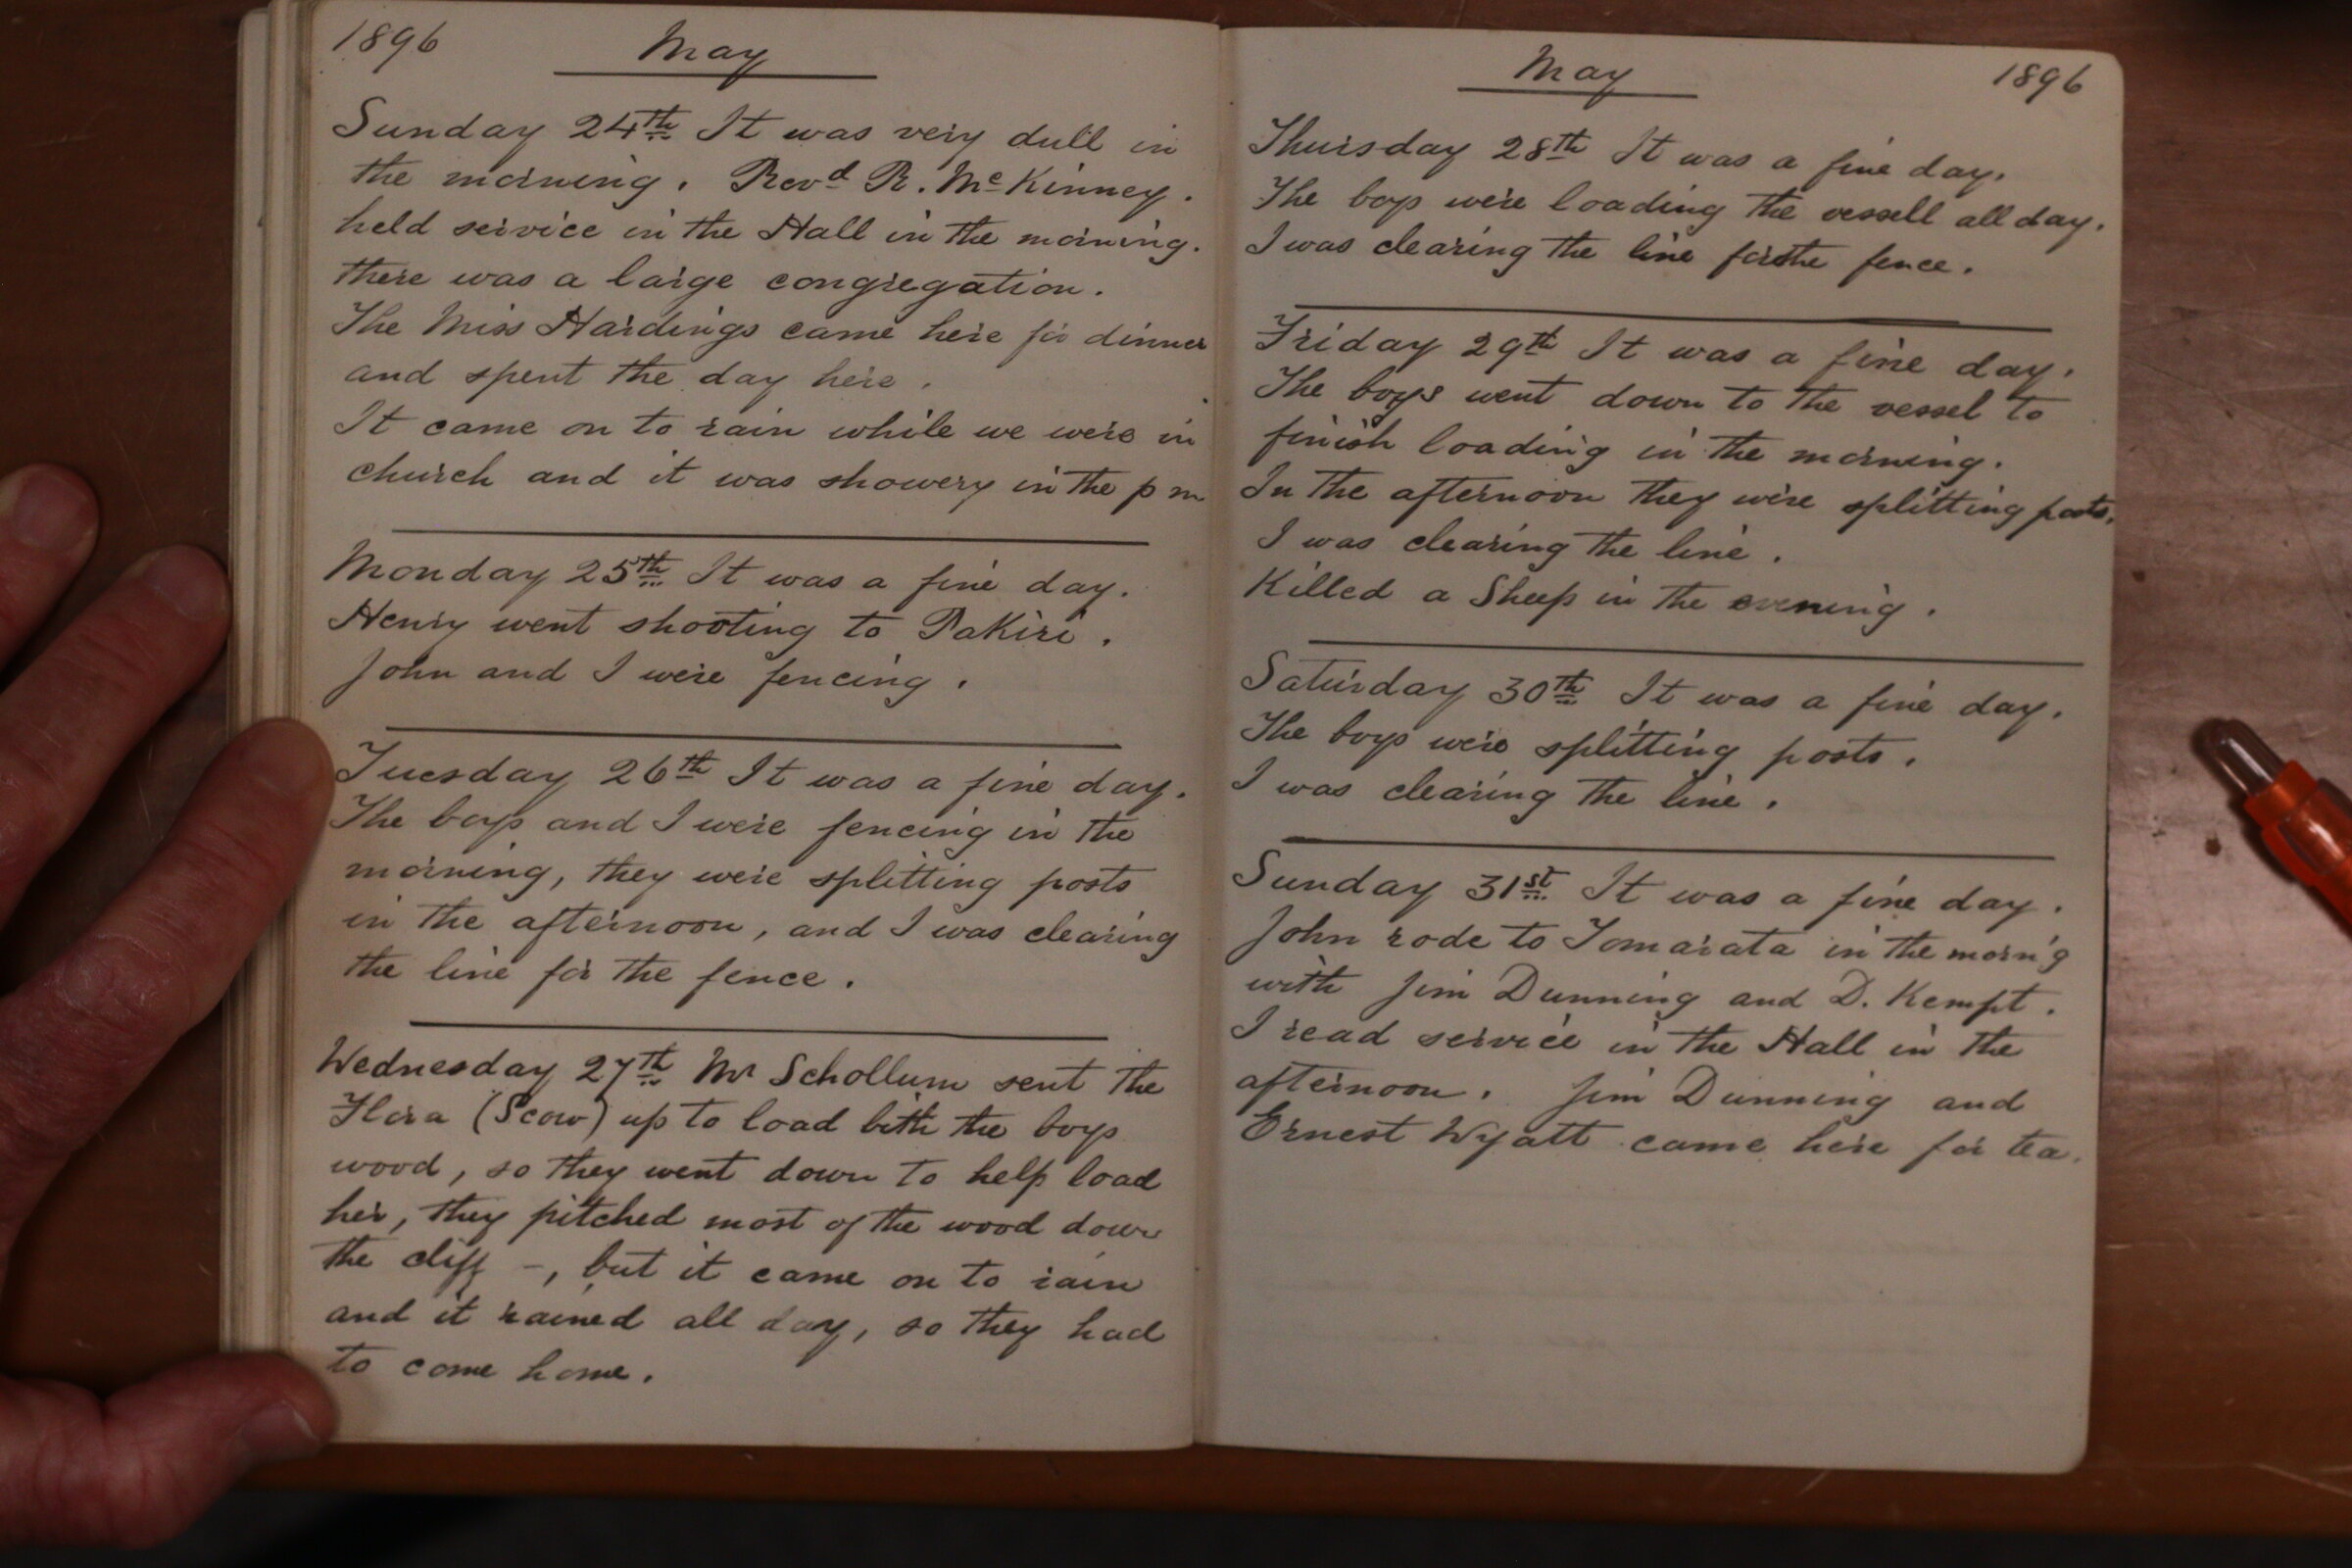 1896 May
Sunday 24th It was very dull in
the morning. Revd R. McKinney.
held service in the Hall in the morning.
there was a large congregation.
The Miss Hardings came here for dinner
and spent the day here.
It came on to rain while we were in
church and it was showery in the p m
Monday 25th It was a fine day.
Henry went shooting to Pakiri.
John and I were fencing.
Tuesday 26th It was a fine day.
The boys and I were fencing in the
morning, they were splitting posts
in the afternoon, and I was clearing
the line for the fence.
Wednesday 27th Mr Schollum sent the
Flora (Scow) up to load with the boys
wood, so they went down to help load
her, they pitched most of the wood down
the cliff -, but it came on to rain
and it rained all day, so they had
to come home.
May 1896
Thursday 28th It was a fine day.
The boys were loading the vessell all day.
I was clearing the line for the fence.
Friday 29th It was a fine day.
The boys went down to the vessel to
finish loading in the morning.
In the afternoon they were splitting posts.
I was clearing the line.
Killed a Sheep in the evening.
Saturday 30th It was a fine day.
The boys were splitting posts.
I was clearing the line.
Sunday 31st It was a fine day.
John rode to Tomarata in the morn'g
with Jim Dunning and D. Kempt.
I read service in the Hall in the
afternoon. Jim Dunning and
Ernest Wyatt came here for tea.